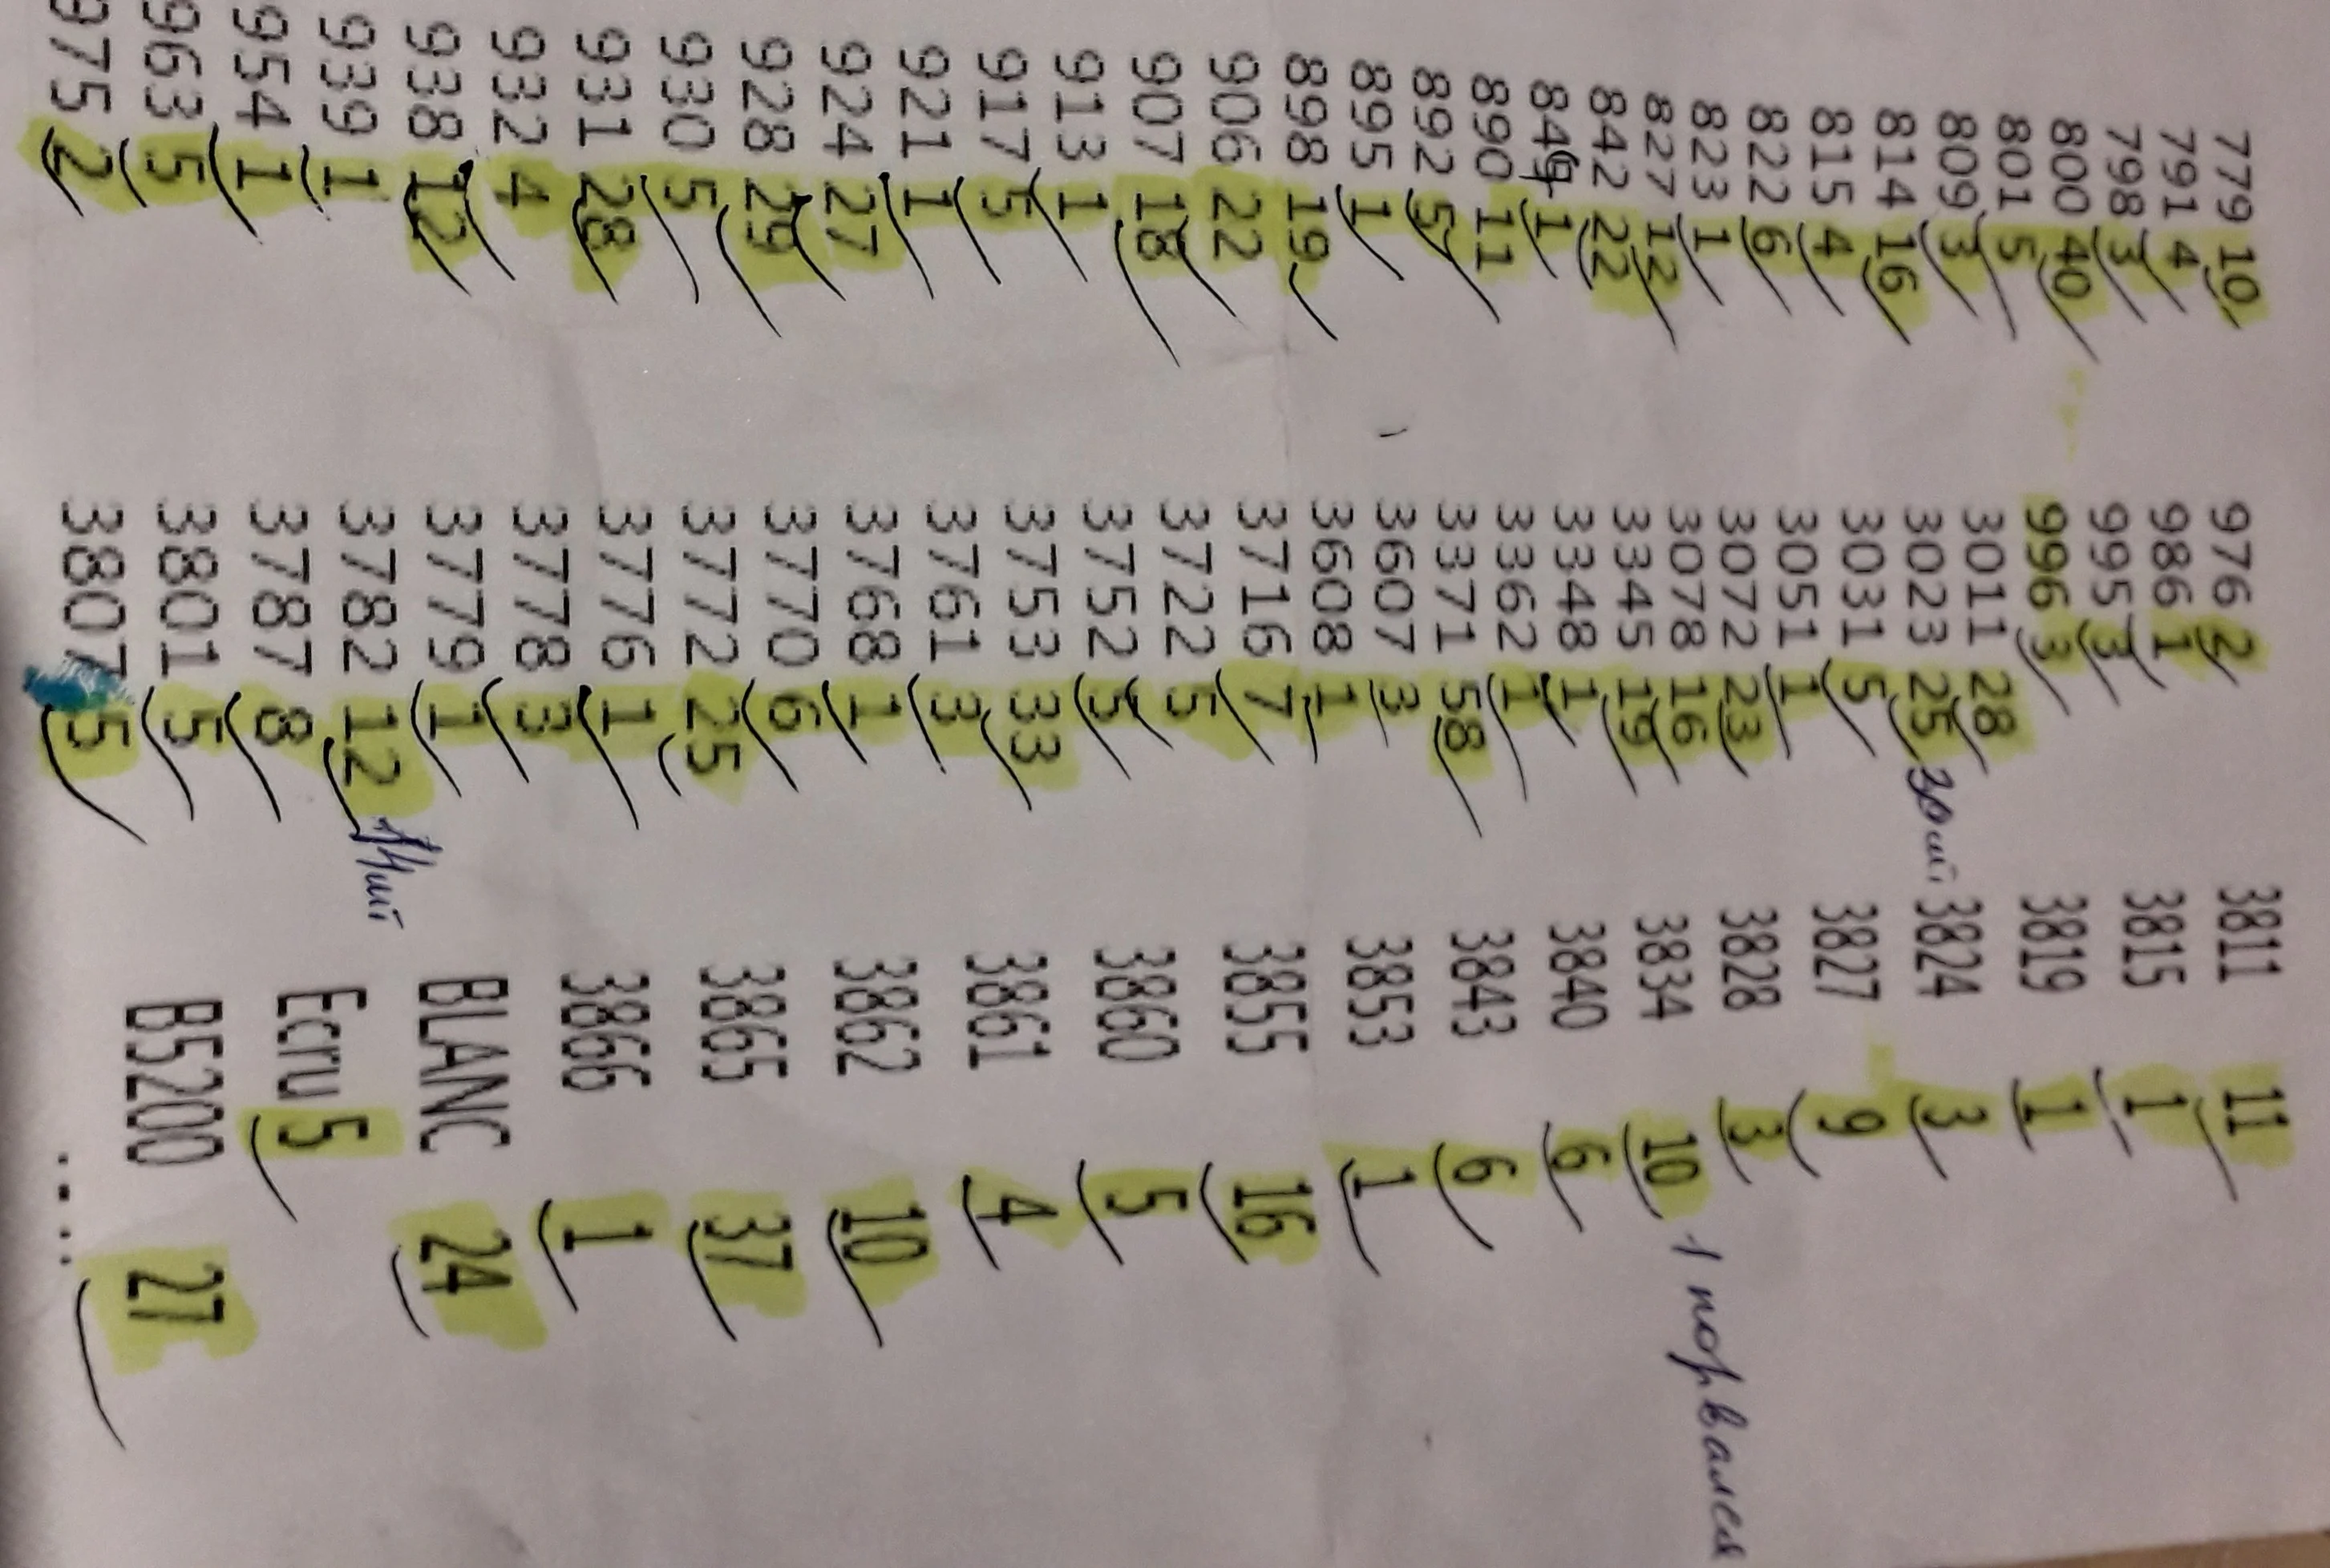 779 10
791 4
798 3
800 40
801 5
809 3
814 16
815 4
822 6
823 1
827 12
842 22
849 1
890 11
892 5
895 1
898 19
906 22
907 18
913 1
917 5
921 1
924 27
928 29
930 5
931 28
932 4
938 12
939 1
954 1
963 5
975 2
976 2
986 1
995 3
996 3
3011 28
3023 25 30шт
3031 5
3051 1
3072 23
3078 16
3345 19
3348 1
3362 1
3371 58
3607 3
3608 1
3716 7
3722 5
3752 5
3753 33
3761 3
3768 1
3770 6
3772 25
3776 1
3778 3
3779 1
3782 12
3787 8
3801 5
3807 5
3811 11
3815 1
3819 1
3824 3
3827 9
3828 3
3834 10 1 порвался
3840 6
3843 6
3853 1
3855 16
3860 5
3861 4
3862 10
3865 37
3866 1
BLANC 24
Ecru 5
B5200 27